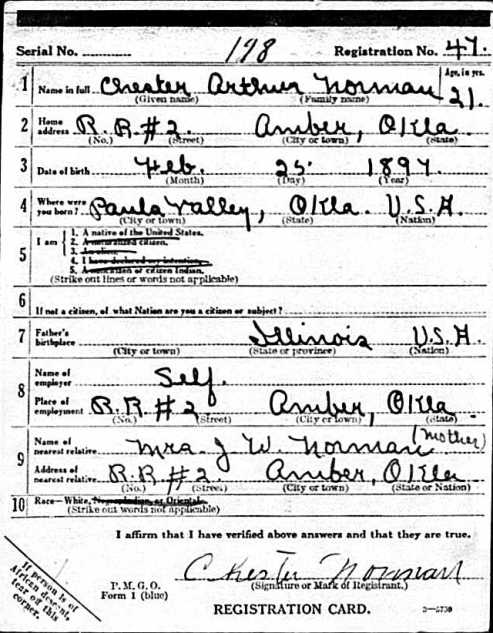 Serial No. 198 Registration No. 47.
1 Name in full Chester Arthur Norman Age, in yrs. 21.
(Given name) (Family name)
2 Home address R.R.#2. Amber, Okla.
(No.) (Street) (City or town) (State)
3 Date of birth Feb. 25 1897.
(Month) (Day) (Year)
4 Where were you born? Paula Valley, Okla. U.S.A.
(City or town) (State) (Nation)
5 I am
1. A native of the United States.
2. A naturalized citizen.
3. An alien.
4. I have declared my intention.
5. A noncitizen or citizen Indian.
(Strike out lines or words not applicable)
6 If not a citizen, of what Nation are you a citizen or subject?
7 Father's birthplace Illinois U.S.A.
(City or town) (State or province) (Nation)
8 Name of employer Self.
Place of employment R.R.#2 Amber, Okla
(No.) (Street) (City or town) (State)
9 Name of nearest relative Mrs. J W. Norman (Mother)
Address of nearest relative R.R#2. Amber, Okla
(No.) (Street) (City or town) (State or Nation)
10 Race—White, Negro, Indian, or Oriental.
(Strike out words not applicable)
I affirm that I have verified above answers and that they are true.
Chester Norman
P.M.G.O. (Signature or Mark of Registrant.)
Form 1 (blue)
REGISTRATION CARD. 3—5730
If person is of
African descent,
tear off this
corner.